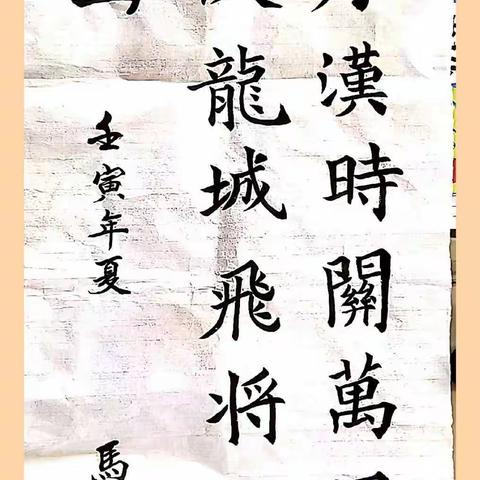 漢時關萬
龍城飛将
壬寅年夏 馬